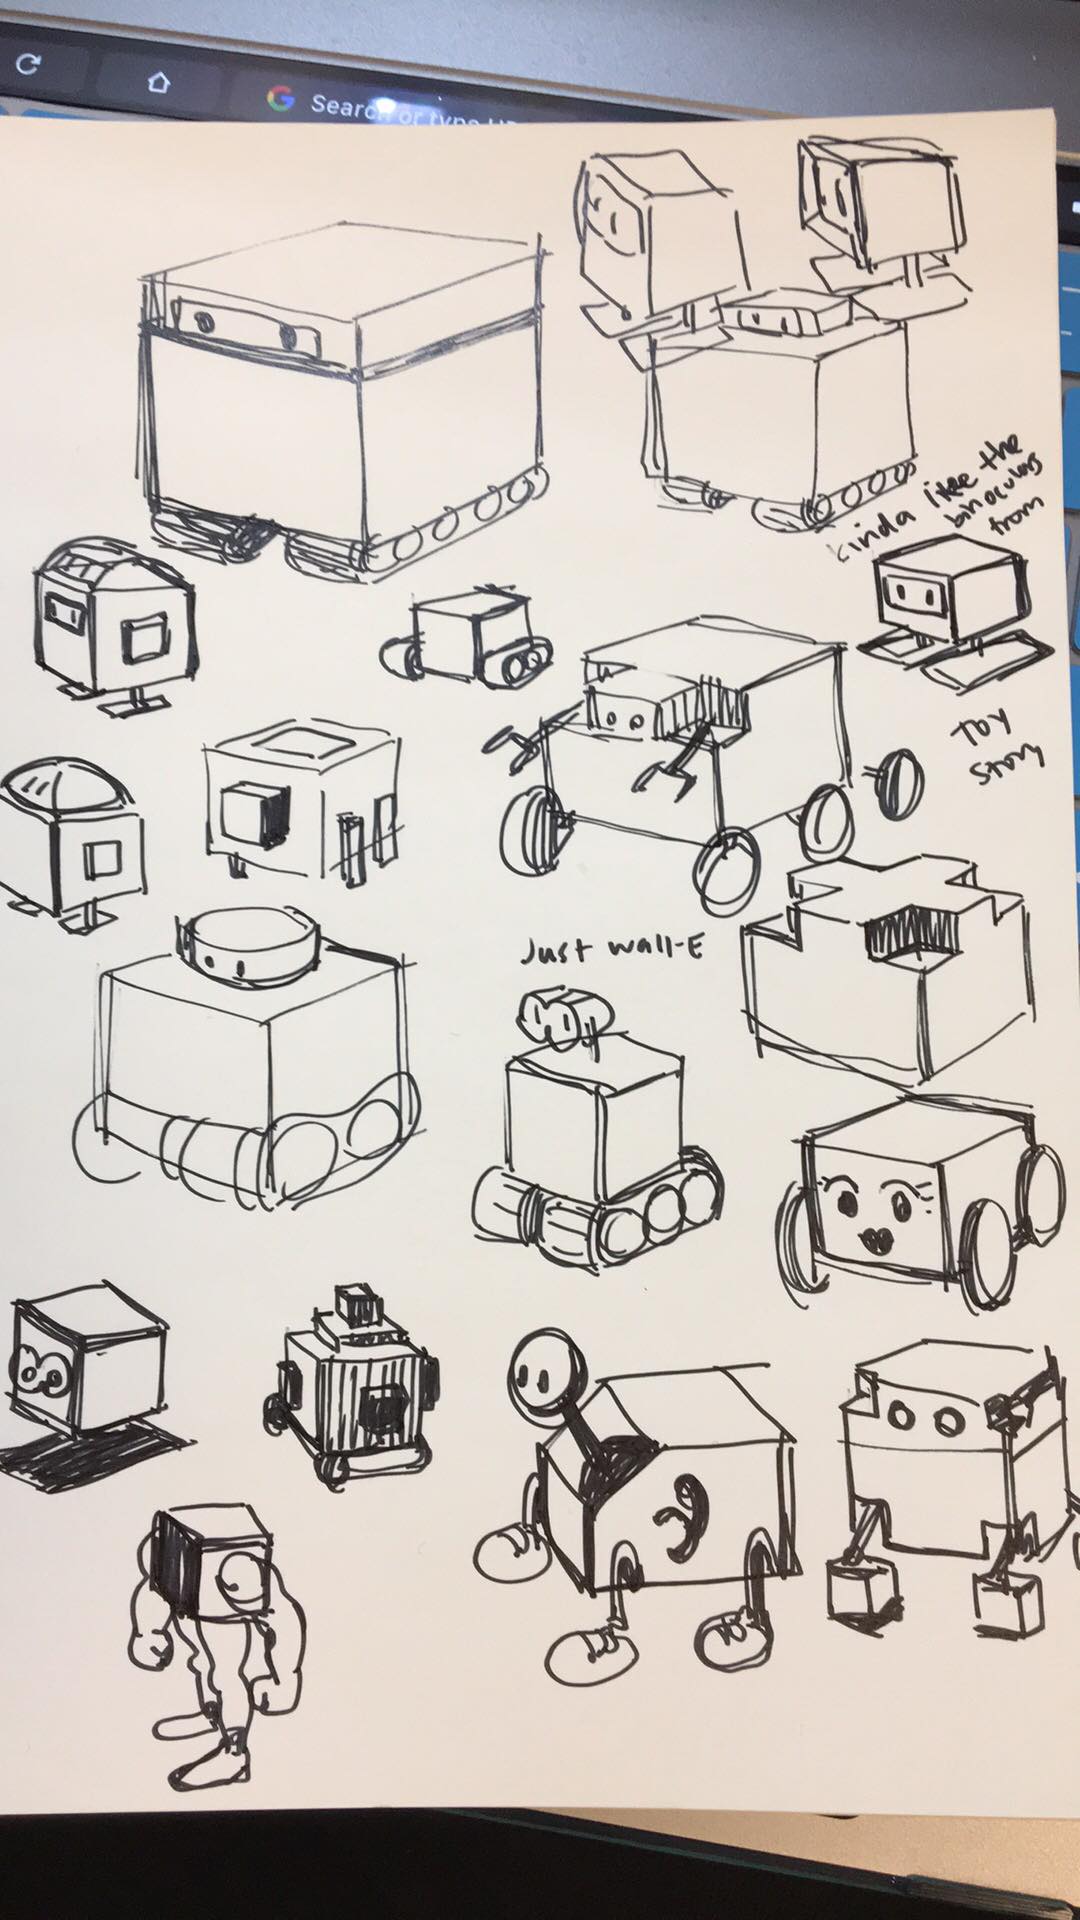 Search or type UR
Kinda like the
binoculars
from
Toy
Story
Just wall-E